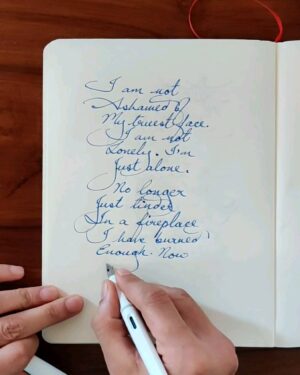 I am not
Ashamed of
My truest face.
I am not
Lonely. I'm
Just alone.
No longer
Just tinder
In a fireplace
I have burned
Enough. Now